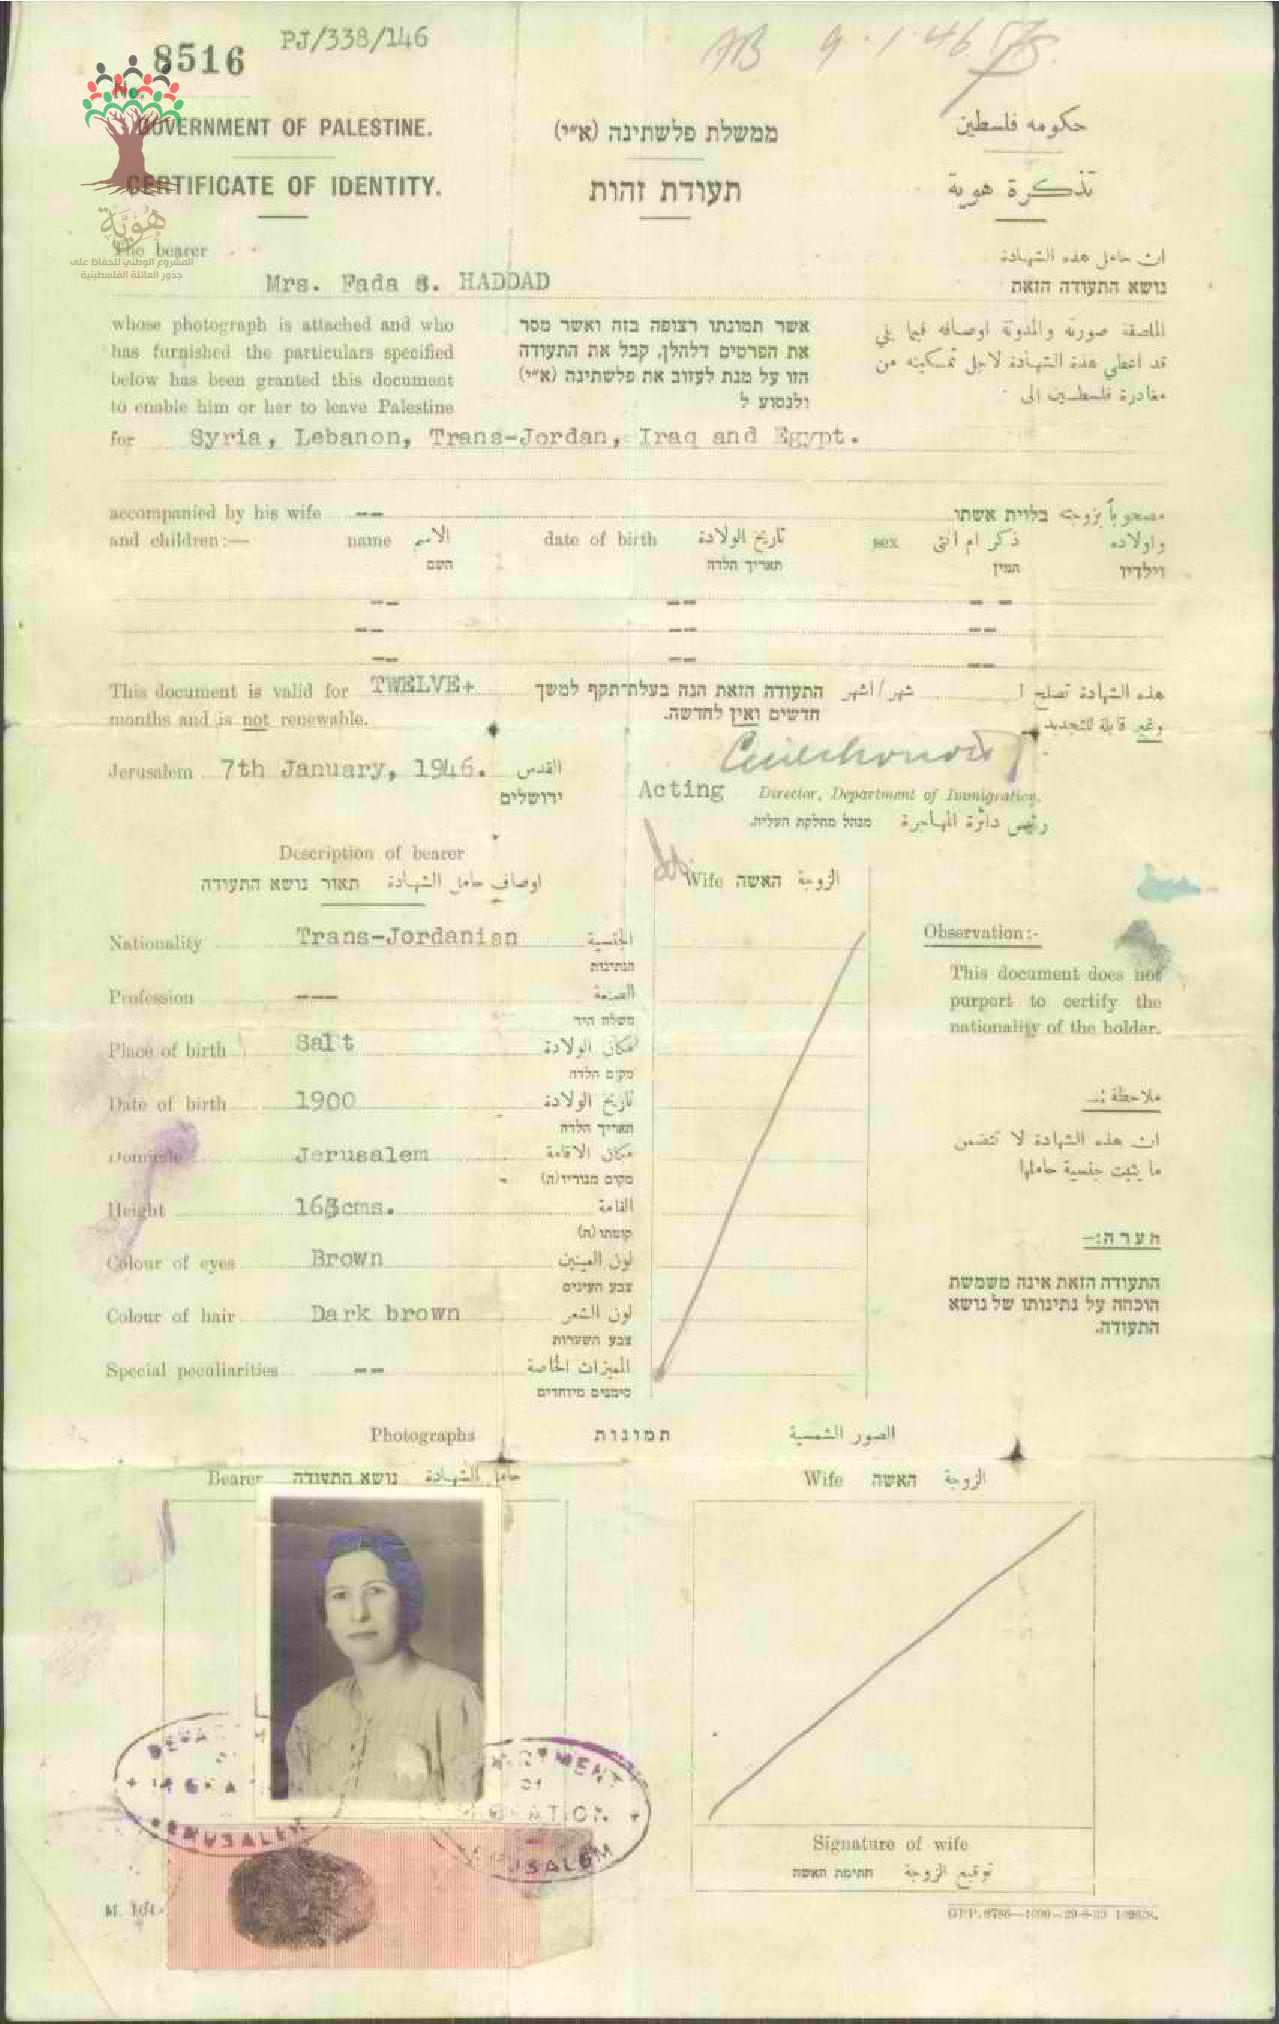 PJ/338/146
No. 8516
9.1.46
GOVERNMENT OF PALESTINE. ממשלת פלשתינה (א״י) حكومه فلسطين
CERTIFICATE OF IDENTITY. תעודת זהות تذكرة هوية
هُوِيَّة
المشروع الوطني للحفاظ على
جذور العائلة الفلسطينية
The bearer ان حامل هذه الشهادة
Mrs. Fada S. HADDAD נושא התעודה הזאת
whose photograph is attached and who
has furnished the particulars specified
below has been granted this document
to enable him or her to leave Palestine
אשר תמונתו רצופה בזה ואשר מסר
את הפרטים דלהלן, קבל את התעודה
הזו על מנת לעזוב את פלשתינה (א״י)
ולנסוע ל
الملصقة صورته والمدونة اوصافه فيما يلي
قد اعطي هذه الشهادة لاجل تمكينه من
مغادرة فلسطين الى
for Syria, Lebanon, Trans-Jordan, Iraq and Egypt.
accompanied by his wife -- בלוית אשתו مصحوباً بزوجته
and children:— name الاسم date of birth تاريخ الولادة sex ذكر ام انثى واولاده
השם תאריך הלדה המין וילדיו
-- -- --
-- -- --
-- -- --
This document is valid for TWELVE+ התעודה הזאת הנה בעלת־תקף למשך شهر/اشهر هذه الشهادة تصلح ا
months and is not renewable. חדשים ואין לחדשה. وغير قابلة للتجديد
Jerusalem 7th January, 1946. القدس
ירושלים
Acting Director, Department of Immigration.
מנהל מחלקת העליה. رئيس دائرة المهاجرة
Description of bearer
תאור נושא התעודה اوصاف حامل الشهادة
Wife האשה الزوجة
Nationality Trans-Jordanian الجنسية
הנתינות
Profession --- الصنعة
משלח היד
Place of birth Salt مكان الولادة
מקום הלדה
Date of birth 1900 تاريخ الولادة
תאריך הלדה
Domicile Jerusalem مكان الاقامة
מקום מגוריו (ה)
Height 163cms. القامة
קומתו (ה)
Colour of eyes Brown لون العينين
צבע העינים
Colour of hair Dark brown لون الشعر
צבע השערות
Special peculiarities -- المميزات الخاصة
סימנים מיוחדים
Observation:-
This document does not
purport to certify the
nationality of the holder.
ملاحظة :—
ان هذه الشهادة لا تتضمن
ما يثبت جنسية حاملها
הערה:—
התעודה הזאת אינה משמשת
הוכחה על נתינותו של נושא
התעודה.
Photographs תמונות الصور الشمسية
Bearer נושא התעודה حامل الشهادة Wife האשה الزوجة
DEPARTMENT
JERUSALEM
DEPARTMENT
OF
IMMIGRATION
JERUSALEM
Signature of wife
חתימת האשה توقيع الزوجة